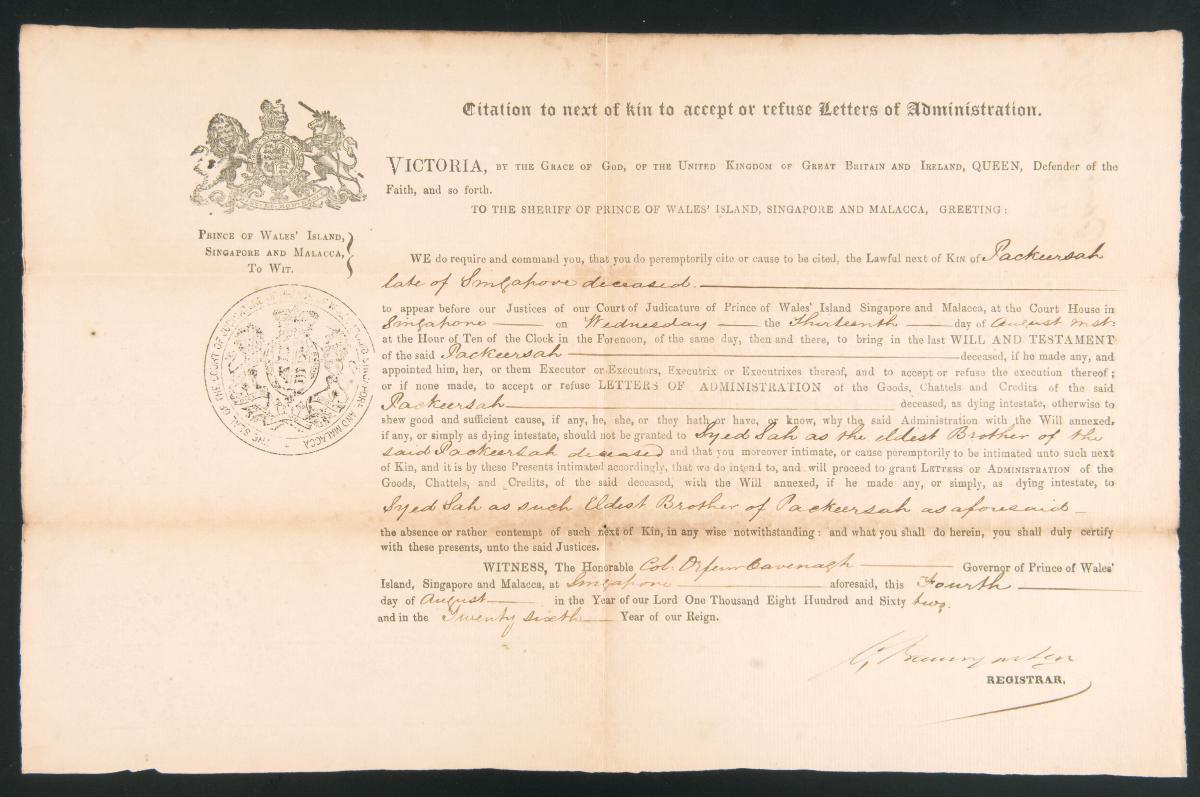 Citation to next of kin to accept or refuse Letters of Administration.
VICTORIA, BY THE GRACE OF GOD, OF THE UNITED KINGDOM OF GREAT BRITAIN AND IRELAND, QUEEN, Defender of the
Faith, and so forth.
TO THE SHERIFF OF PRINCE OF WALES' ISLAND, SINGAPORE AND MALACCA, GREETING:
PRINCE OF WALES' ISLAND,
SINGAPORE AND MALACCA,
TO WIT.
THE SEAL OF THE COURT OF JUDICATURE OF PRINCE OF WALES ISLAND SINGAPORE AND MALACCA
WE do require and command you, that you do peremptorily cite or cause to be cited, the Lawful next of KIN of Packeersah
late of Singapore deceased.
to appear before our Justices of our Court of Judicature of Prince of Wales' Island Singapore and Malacca, at the Court House in
Singapore on Wednesday the Thirteenth day of August inst:
at the Hour of Ten of the Clock in the Forenoon, of the same day, then and there, to bring in the last WILL AND TESTAMENT
of the said Packeersah deceased, if he made any, and
appointed him, her, or them Executor or Executors, Executrix or Executrixes thereof, and to accept or refuse the execution thereof;
or if none made, to accept or refuse LETTERS OF ADMINISTRATION of the Goods, Chattels and Credits of the said
Packeersah deceased, as dying intestate, otherwise to
shew good and sufficient cause, if any, he, she, or they hath or have, or know, why the said Administration with the Will annexed,
if any, or simply as dying intestate, should not be granted to Syed Sah as the eldest Brother of the
said Packeersah deceased and that you moreover intimate, or cause peremptorily to be intimated unto such next
of Kin, and it is by these Presents intimated accordingly, that we do intend to, and will proceed to grant LETTERS OF ADMINISTRATION of the
Goods, Chattels, and Credits, of the said deceased, with the Will annexed, if he made any, or simply, as dying intestate, to
Syed Sah as such Eldest Brother of Packeersah as aforesaid
the absence or rather contempt of such next of Kin, in any wise notwithstanding: and what you shall do herein, you shall duly certify
with these presents, unto the said Justices.
WITNESS, The Honorable Col: Orfeur Cavenagh Governor of Prince of Wales'
Island, Singapore and Malacca, at Singapore aforesaid, this Fourth
day of August in the Year of our Lord One Thousand Eight Hundred and Sixty two.
and in the Twenty sixth Year of our Reign.
REGISTRAR.